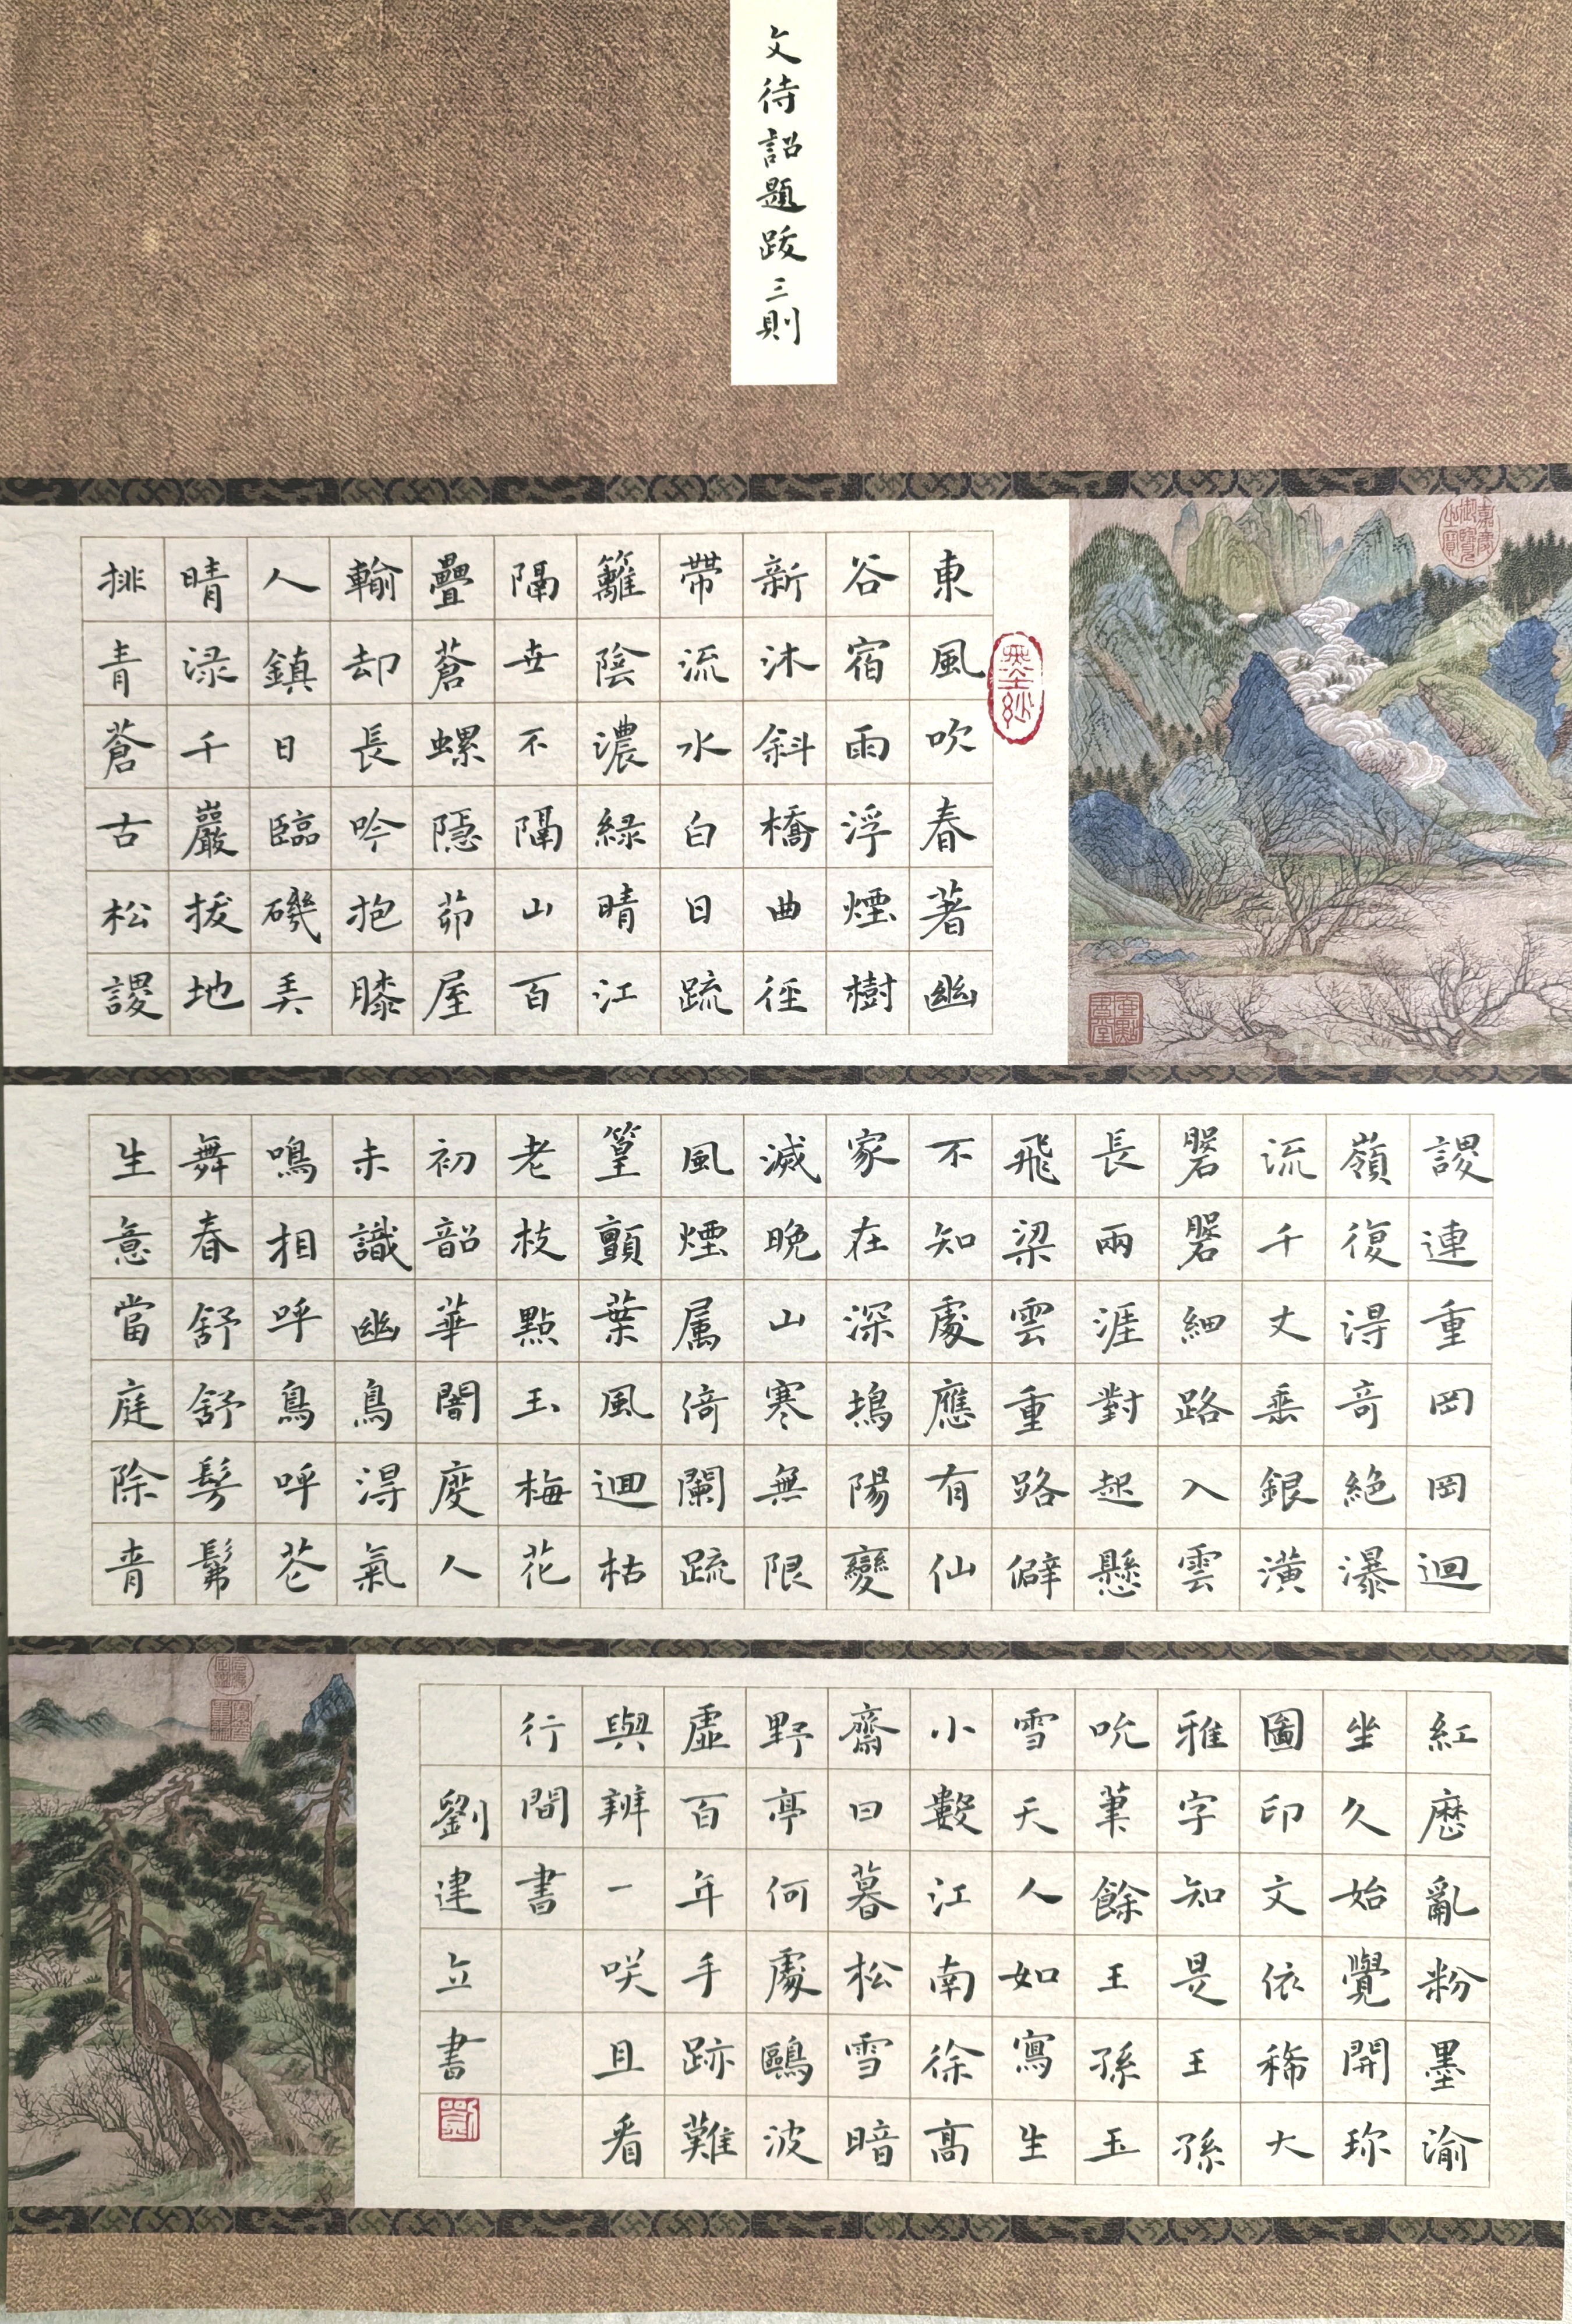 文待詔題跋三則
東風吹春著幽
谷宿雨浮煙樹
新沐斜橋曲徑
帶流水白日疏
籬陰濃綠晴江
隔世不隔山百
疊蒼螺隱茆屋
輸却長吟抱膝
人鎮日臨磯弄
晴渌千巖拔地
排青蒼古松謖
謖連重岡岡迴
嶺復得奇絕瀑
流千丈垂銀潢
磐磐細路入雲
長兩涯對起懸
飛梁雲重路僻
不知處應有仙
家在深塢陽變
滅晚山寒無限
風煙属倚闌疏
篁顫葉風迴枯
老枝點玉梅花
初韶華闇度人
未識幽鳥得氣
鳴相呼鳥呼芲
舞春舒舒髣髴
生意當庭除青
紅歷亂粉墨渝
坐久始覺開珎
圖印文依稀大
雅字知是王孫
吮筆餘王孫玉
雪天人如寫生
小數江南徐高
齋日暮松雪暗
野亭何處鷗波
虛百年手跡難
與辨一咲且看
行間書
劉建立書